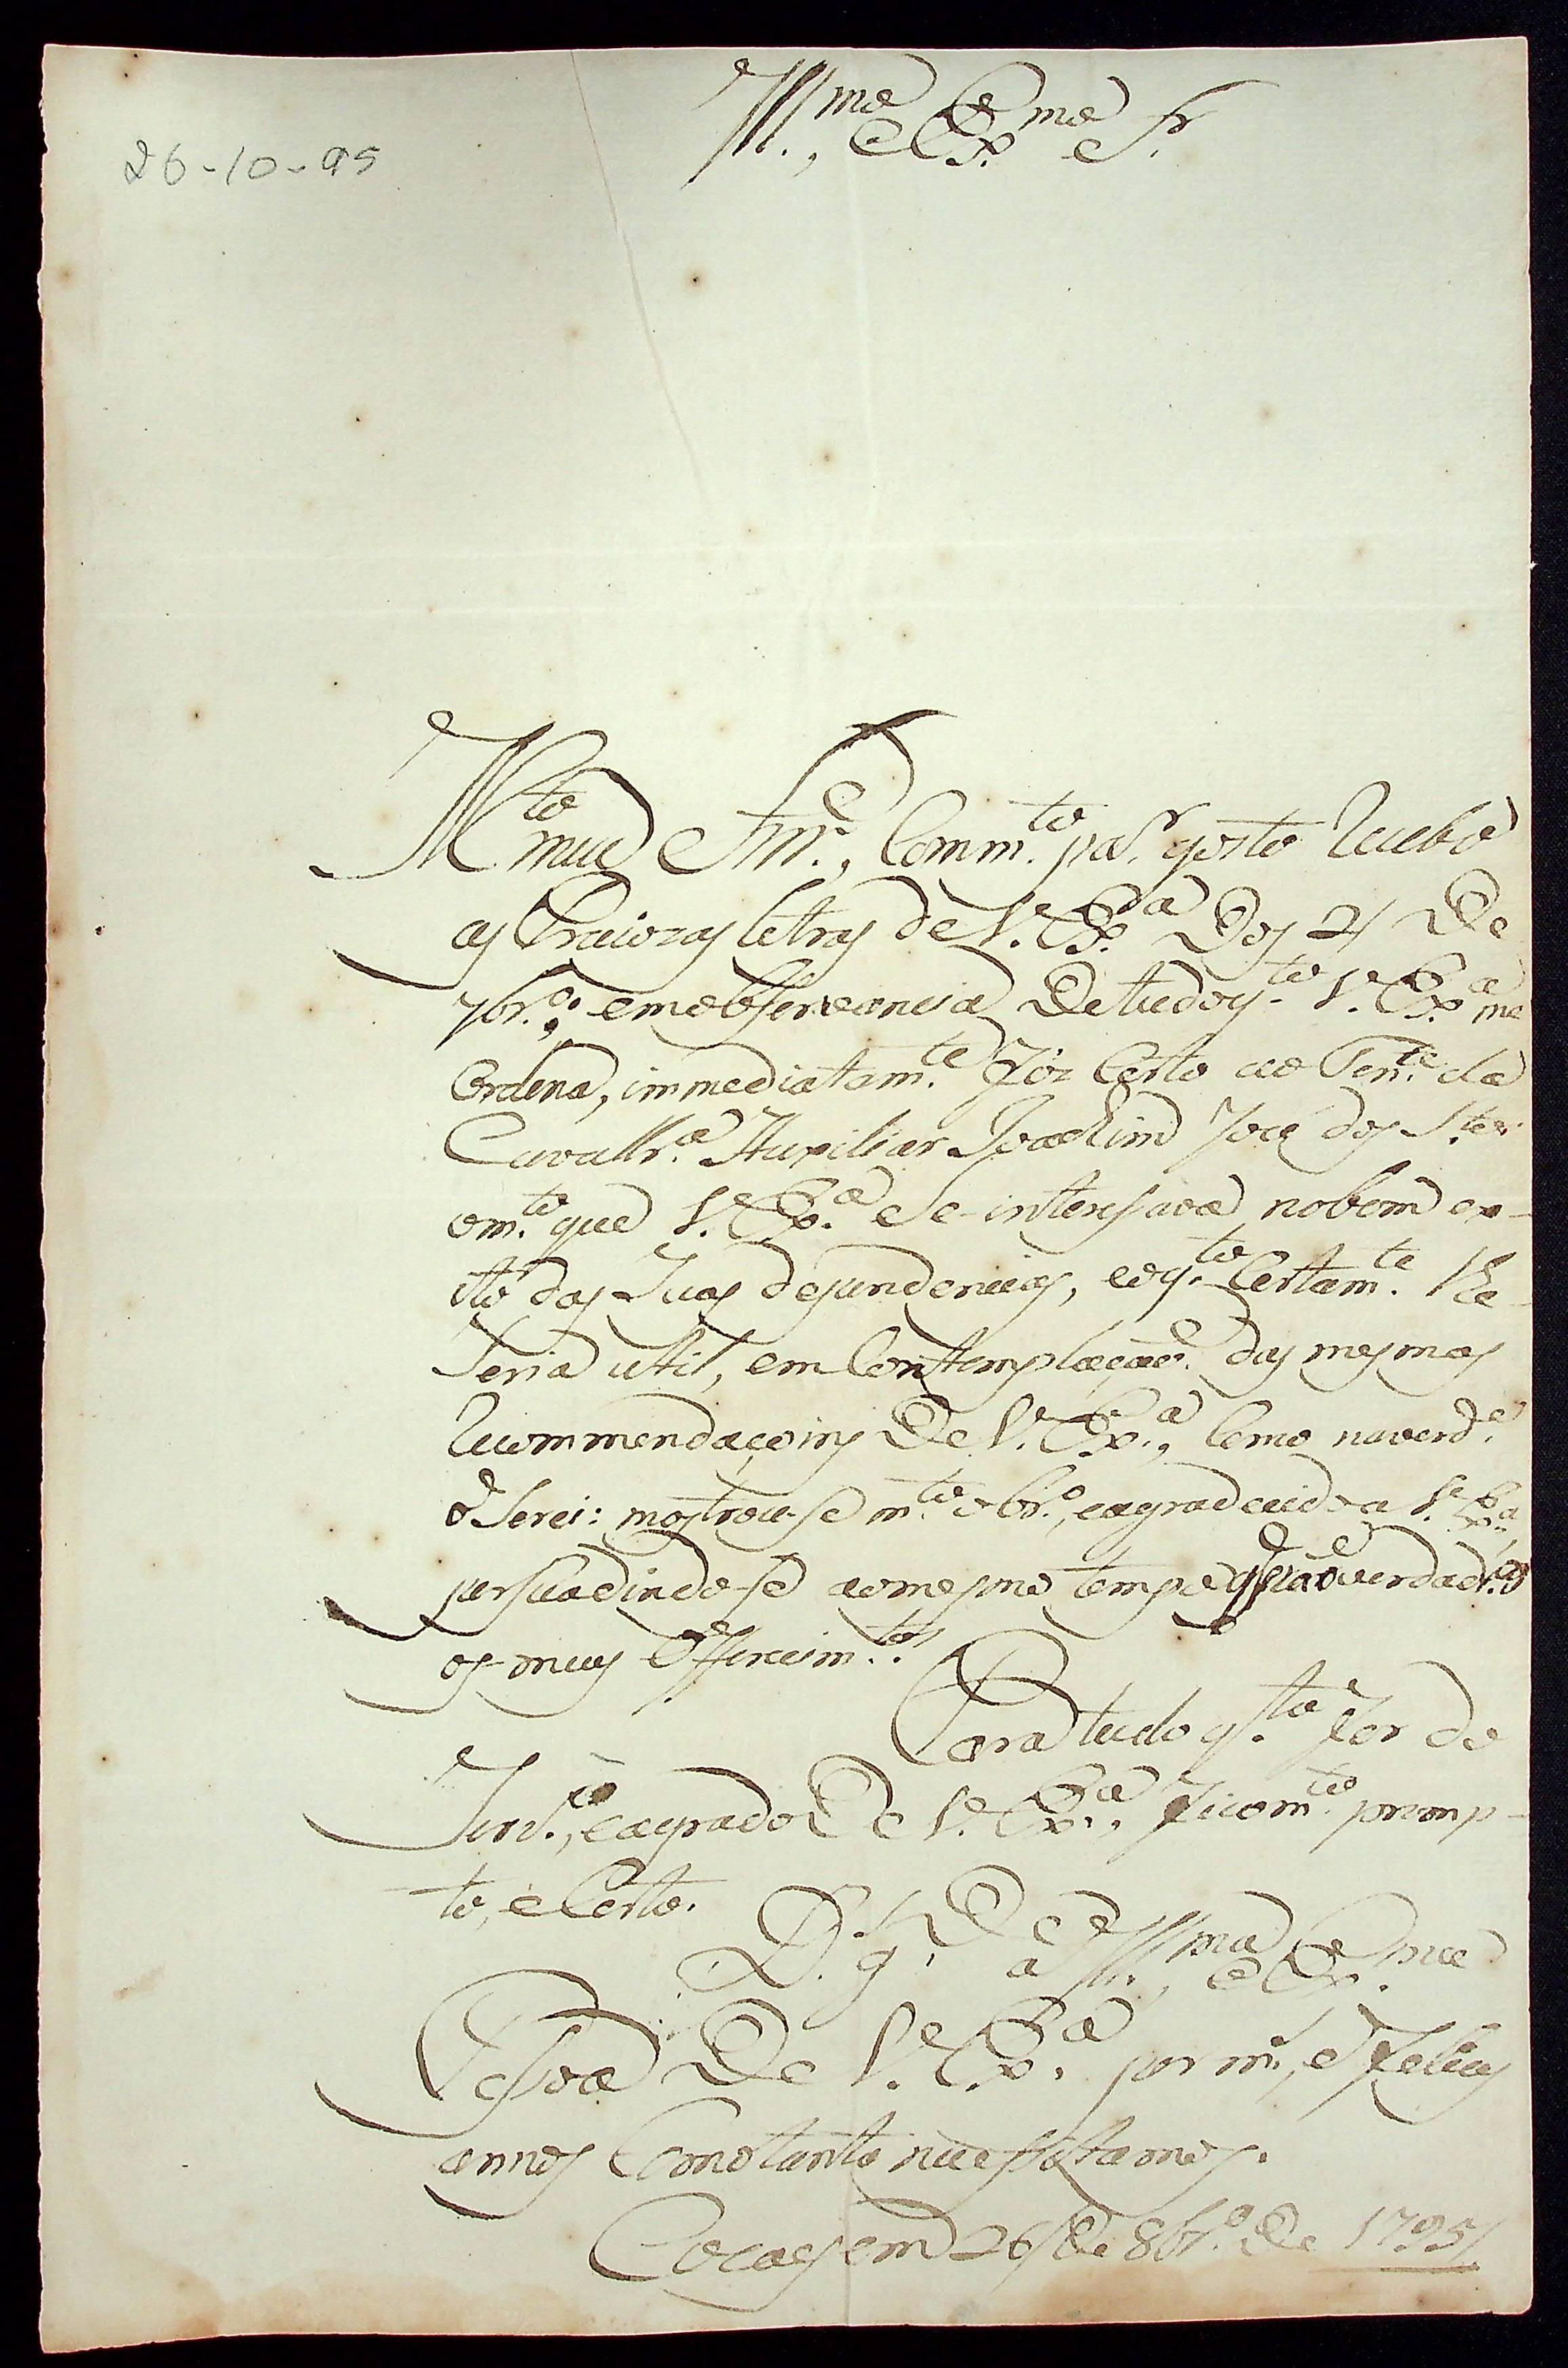 Ill.mo, e Ex.mo Sr.
26-10-95
M.to meu Am.o, Com m.to pa.r gosto recebo
as Preciozas letras de V. Ex.a Dos 21 De
7br.o; em observancia De tudo q.to V. Ex.a me
Ordena, immediatam.te fiz certo ao Ten.te da
Cavallr.a Auxiliar Joachim Joze dos S.tos
o m.to que V. Ex.a Se interessava no bom ex-
ito das Suas dependencias, eo q.to Certam.te lhe
Seria util, em Contemplação das mesmas
Recommendaçoins De V. Ex.a, Como na verd.e
o Serei: mostrou-se m.to obr.o, e agradecido a V. Ex.a,
persuadindo-se ao mesmo tempo q serão verdadr.os
os meus Offerecim.tos.
Para tudo q.to for do
Serv.o, e agrado De V. Ex.a, fico m.to promp-
to, e Certo.
D.s g.De a Ill.ma, e Ex.ma
Pessoa De V. Ex.a por m.s, e Felices
annos Como tanto necessitamos.
Cocaes em 26 De 8br.o De 1795